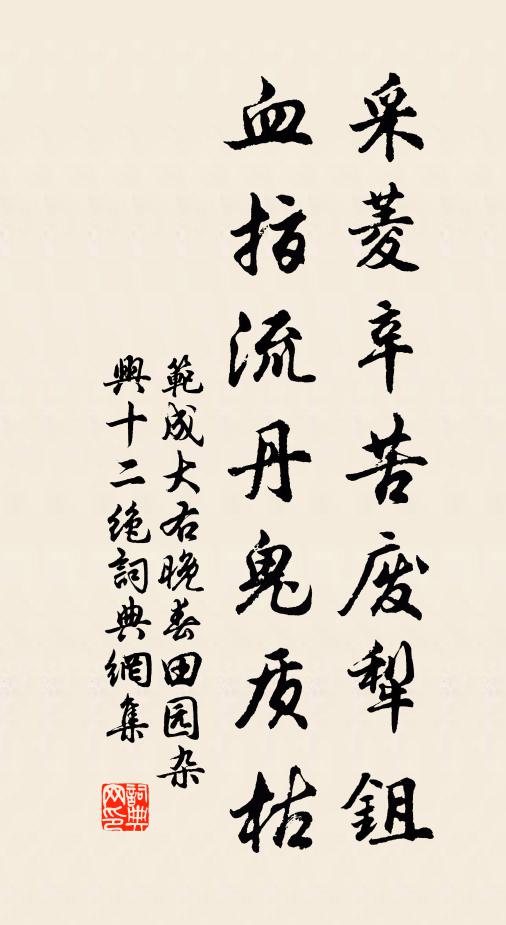 采菱辛苦废犁鉏
血指流丹鬼质枯
範成大右晚春田园杂
興十二绝詞典網集
詞典網印